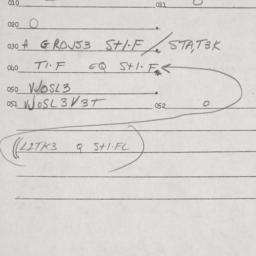 010 031
020 0
030 A GROUS3 S+1.F / STAT3K
040 T1.F EQ S+1.F
050 WOSL3
051 WOSL3V3T 052 0
(L2TK3 Q S+1.FL)